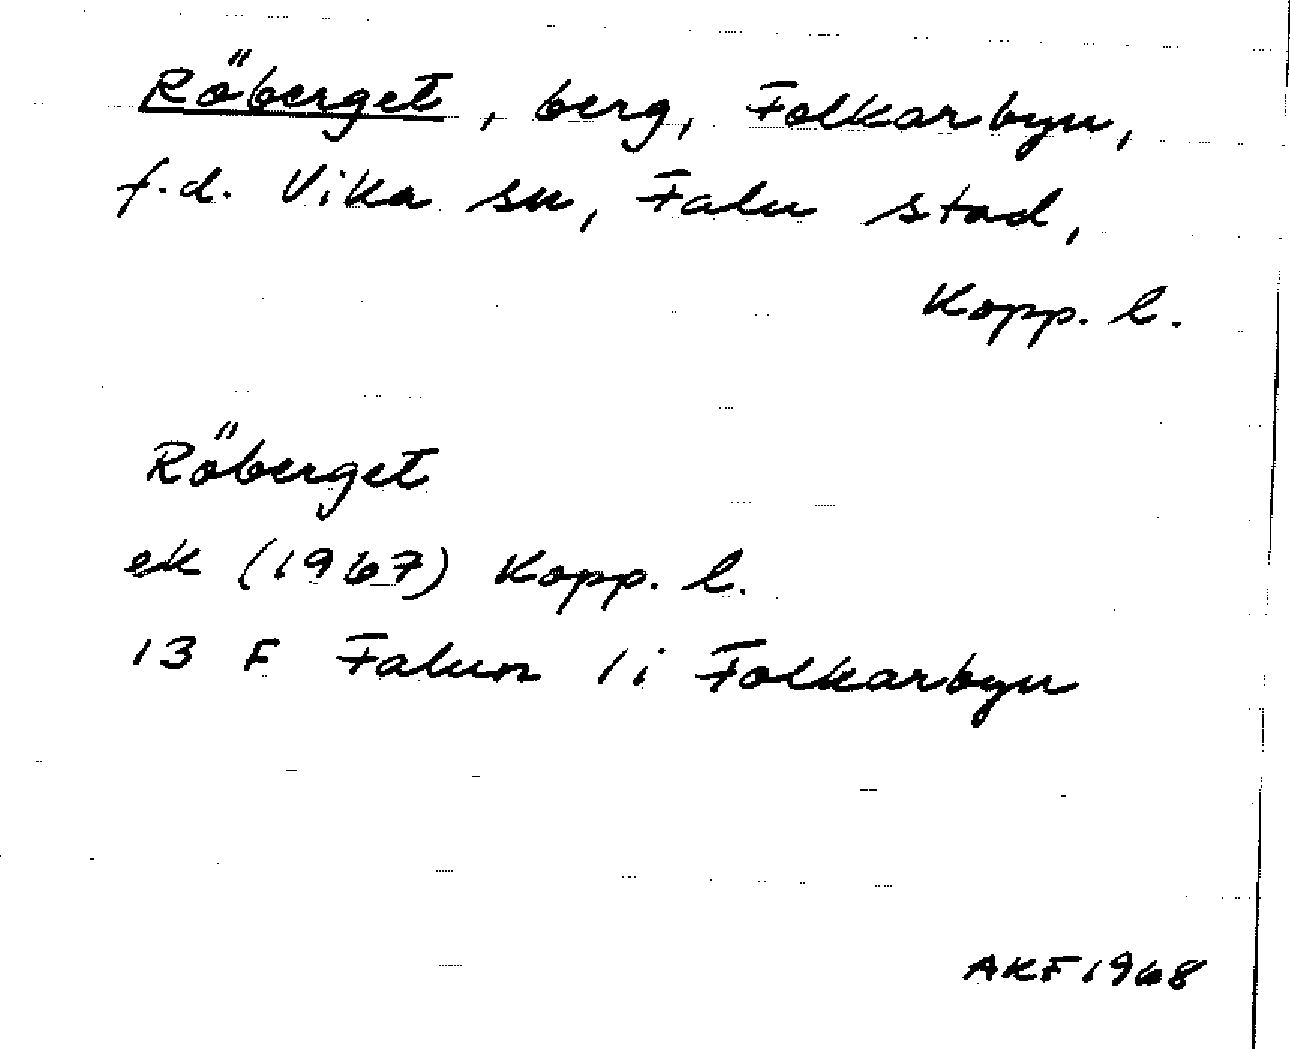 Röberget, berg, Folkarbyn,
f.d. Vika sn, Falu stad,
Kopp. l.
Röberget
ek (1967) Kopp. l.
13 F Falun 1i Folkarbyn
AKF 1968